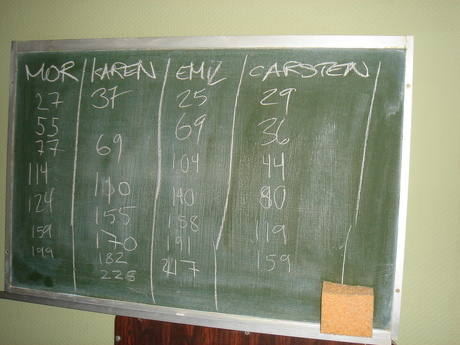 MOR KAREN EMIL CARSTEN
27 37 25 29
55 69 36
77 69 104 44
114 110 140 80
124 155 158 119
159 170 191 159
199 182 217
228